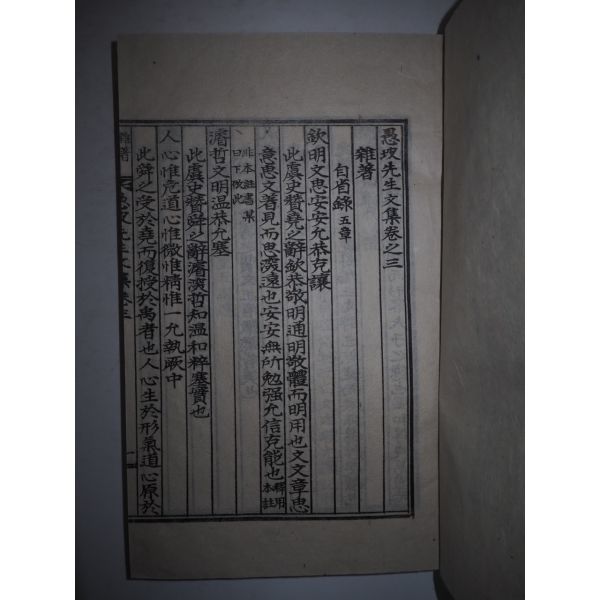 愚坡先生文集卷之三
雜著
自省錄 五章
欽明文思安安允恭克讓
此虞史贊堯之辭欽恭敬明通明敬體而明用也文文章思
意思文著見而思深遠也安安無所勉强允信克能也 釋用本註
非本註書某曰下放此
濬哲文明温恭允塞
此虞史贊舜之辭濬深哲知温和粹塞實也
人心惟危道心惟微惟精惟一允執厥中
此舜之受於堯而復授於禹者也人心生於形氣道心原於
雜著 愚坡先生文集卷三 一